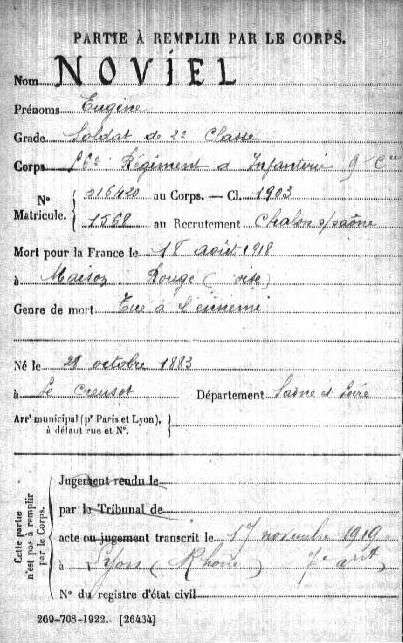 PARTIE À REMPLIR PAR LE CORPS.
Nom NOVIEL
Prénoms Eugène
Grade Soldat de 2e Classe
Corps Régiment d'Infanterie 9 Cie
N° Matricule. { 216420 au Corps. — Cl. 1903
1568 au Recrutement Chalon s/saône
Mort pour la France le 18 août 1918
à Maison Rouge (oise)
Genre de mort Tué à l'ennemi
Né le 21 octobre 1883
à Le Creusot Département Saône et Loire
Arrt municipal (pr Paris et Lyon), à défaut rue et N°. }
Cette partie n'est pas à remplir par le Corps.
Jugement rendu le
par le Tribunal de
acte ou jugement transcrit le 17 novembre 1919
à Lyon (Rhône) 7e arrt
N° du registre d'état civil
269-708-1922. [26434]